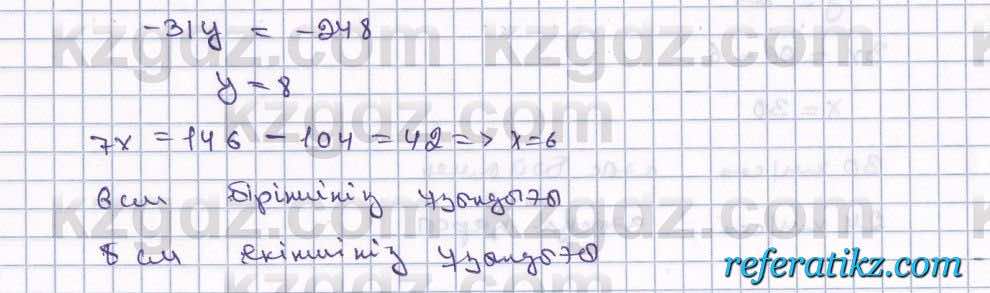 -31y = -248
y = 8
7x = 146 - 104 = 42 => x=6
6 см біріншінің ұзындығы
8 см екіншінің ұзындығы
kzgdz.com kzgdz.com kzgdz.com
referatikz.com